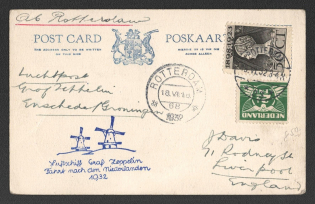 a/b Rotterdam
POST CARD POSKAART
THE ADDRESS ONLY TO BE WRITTEN
ON THIS SIDE
Luchtpost
Graf Zeppelin
Enschede/Groningen
ROTTERDAM
18.VI.
1932
NEDERLAND
Luftschiff Graf Zeppelin
Fahrt nach den Niederlanden
1932
J Davis
71 Rodney St
Liverpool
England